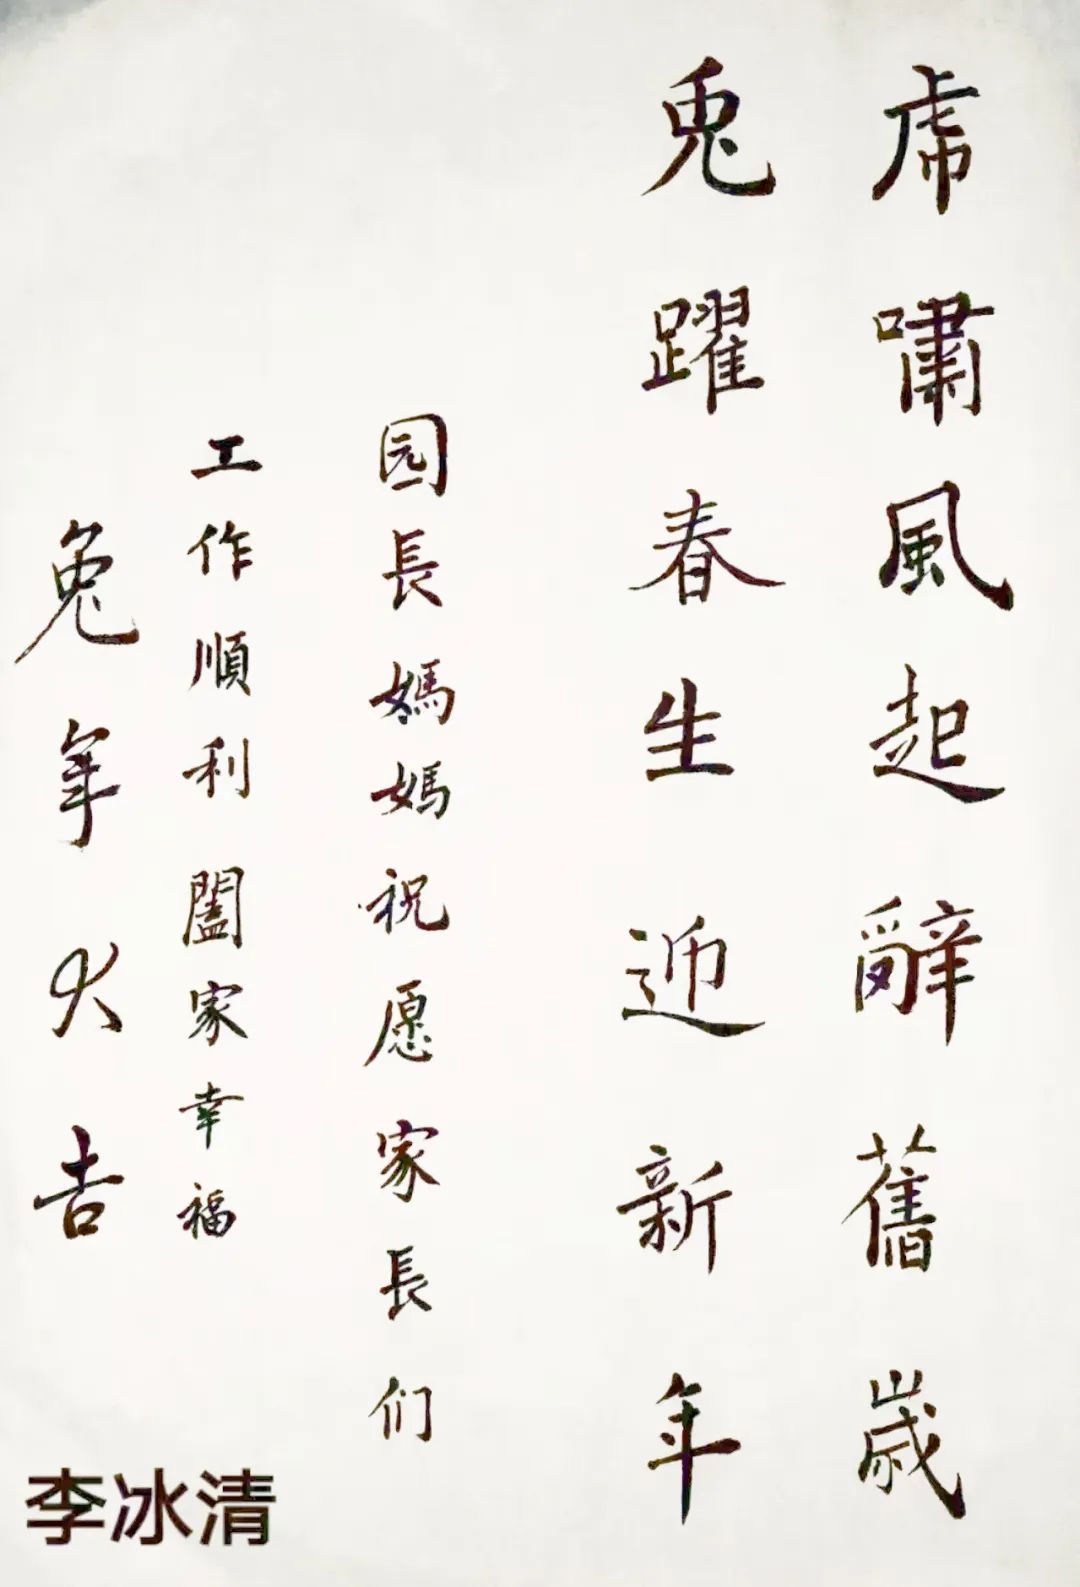 虎嘯風起辭舊歲
兎躍春生迎新年
园長媽媽祝愿家長们
工作順利闔家幸福
兔年大吉
李冰清